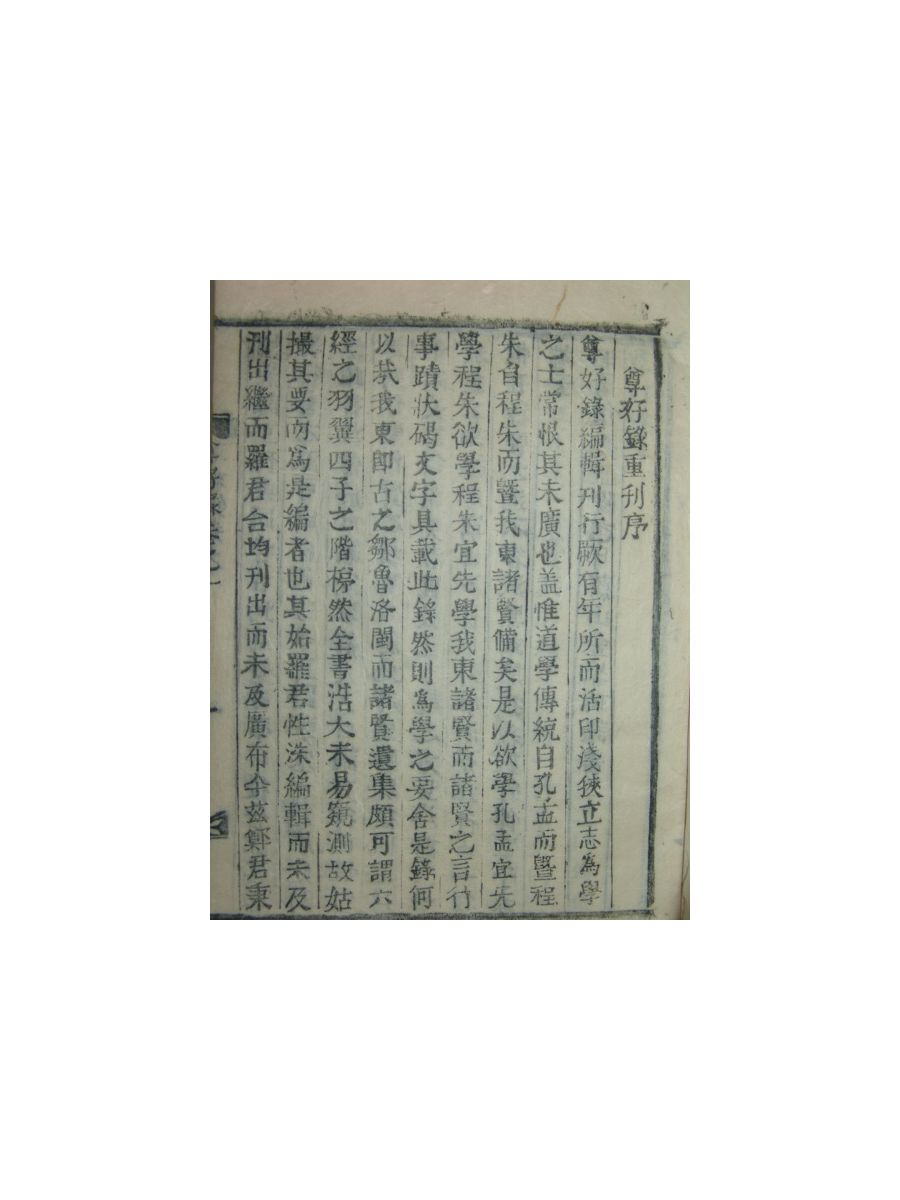 尊好錄重刊序
尊好錄編輯刊行厥有年所而活印淺狹立志為學
之士常恨其未廣也盖惟道學傳統自孔孟而曁程
朱自程朱而曁我東諸賢備矣是以欲學孔孟宜先
學程朱欲學程朱宜先學我東諸賢而諸賢之言行
事蹟狀碣文字具載此錄然則為學之要舍是錄何
以哉我東即古之鄒魯洛閩而諸賢遺集頗可謂六
經之羽翼四子之階梯然全書浩大未易窺測故姑
撮其要而為是編者也其始羅君性洙編輯而未及
刊出繼而羅君合均刊出而未及廣布今茲鄭君秉